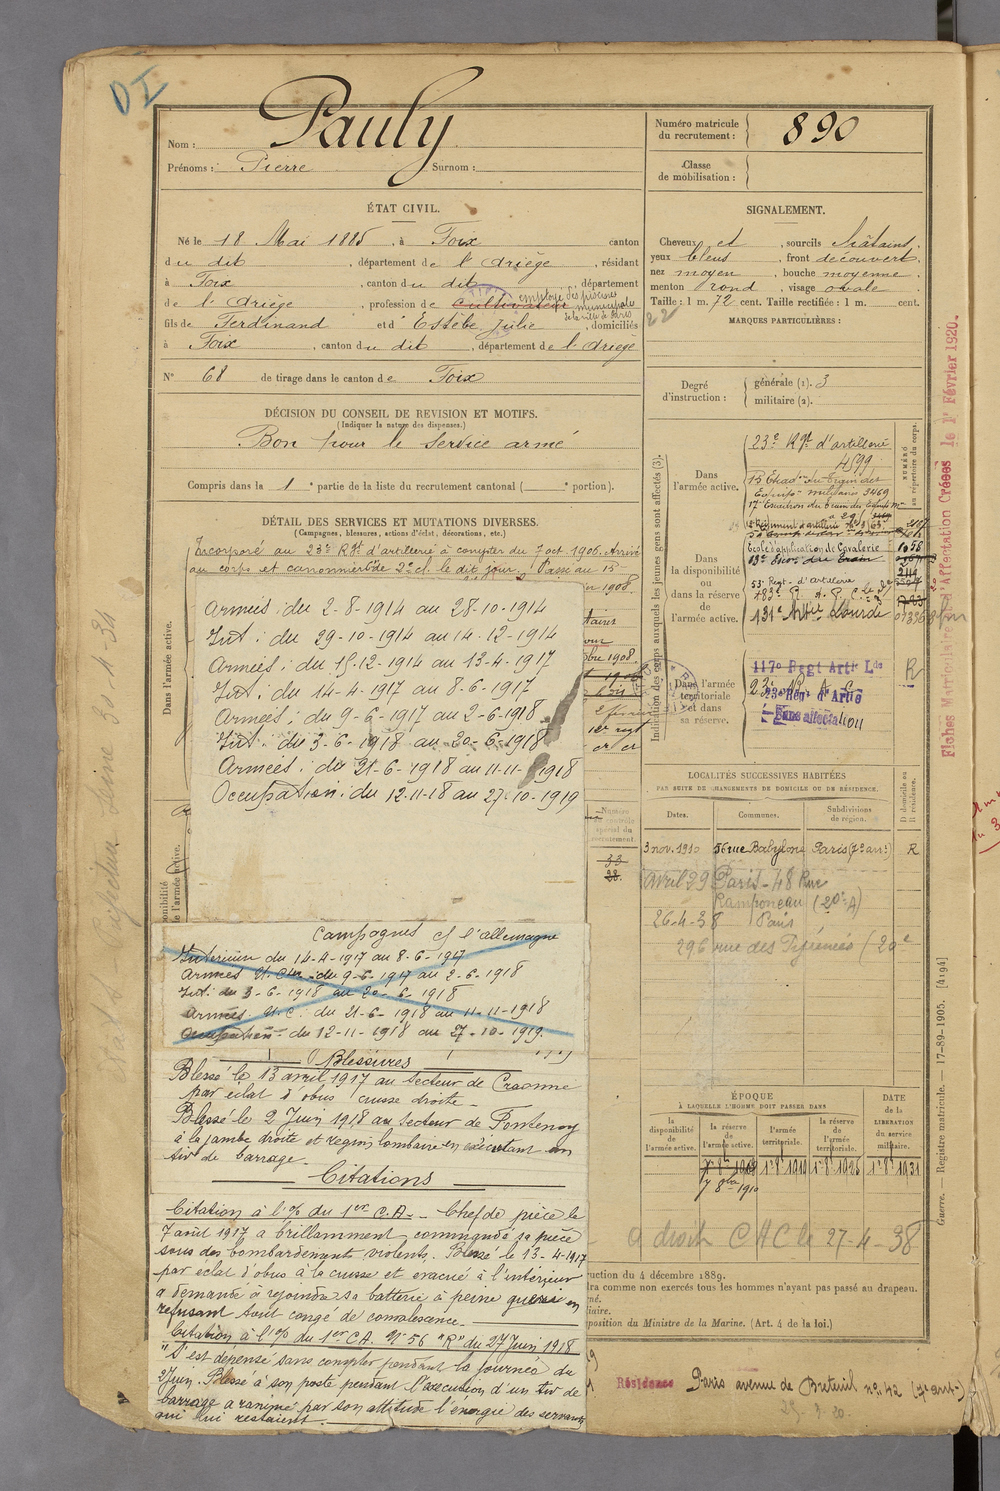 D I
Nom : Pauly
Prénoms : Pierre Surnom :
Numéro matricule
du recrutement : 890
Classe
de mobilisation :
ÉTAT CIVIL.
Né le 18 Mai 1885, à Foix canton
du dit, département de l'Ariège, résidant
à Foix, canton du dit, département
de l'Ariège, profession de Cultivateur employé des piscines
municipales
de la ville de Paris
fils de Ferdinand et d'Estèbe Julie, domiciliés
à Foix, canton du dit, département de l'Ariège
N° 68 de tirage dans le canton de Foix
DÉCISION DU CONSEIL DE REVISION ET MOTIFS.
(Indiquer la nature des dispenses.)
Bon pour le service armé
Compris dans la 1re partie de la liste du recrutement cantonal ( e portion).
DÉTAIL DES SERVICES ET MUTATIONS DIVERSES.
(Campagnes, blessures, actions d'éclat, décorations, etc.)
Incorporé au 23e Rgt d'artillerie à compter du 7 oct. 1906. Arrivé
au corps et canonnier de 2e cl. le dit jour. Passé au 15
Dans l'armée active.
Armées : du 2-8-1914 au 28-10-1914
Int : du 29-10-1914 au 14-12-1914
Armées : du 15-12-1914 au 13-4-1917
Int : du 14-4-1917 au 8-6-1917
Armées : du 9-6-1917 au 2-6-1918
Int : du 3-6-1918 au 20-6-1918
Armées : du 21-6-1918 au 11-11-1918
Occupation : du 12-11-18 au 27-10-1919
Campagnes c/ l'allemagne
Intérieur du 14-4-1917 au 8-6-1917
Armées N. C. du 9-6-1917 au 2-6-1918
Int. du 3-6-1918 au 20-6-1918
Armées N. C. du 21-6-1918 au 11-11-1918
Occupation du 12-11-1918 au 27-10-1919.
Blessures
Blessé le 13 avril 1917 au secteur de Craonne
par éclat d'obus cuisse droite
Blessé le 2 Juin 1918 au secteur de Fontenoy
à la jambe droite et région lombaire en exécutant un
tir de barrage
Citations
Citation à l'O/ du 1er C.A. Chef de pièce le
7 août 1917 a brillamment commandé sa pièce
sous des bombardements violents. Blessé le 13-4-1917
par éclat d'obus à la cuisse et évacué à l'intérieur
a demandé à rejoindre sa batterie à peine guéri en
refusant tout congé de convalescence.
Citation à l'O/ du 1er C.A. N° 56 "R" du 27 Juin 1918
"S'est dépensé sans compter pendant la journée du
2 Juin. Blessé à son poste pendant l'exécution d'un tir de
barrage a ranimé par son attitude l'énergie des servants
qui lui restaient.
SIGNALEMENT.
Cheveux et, sourcils châtains.
yeux bleus, front découvert
nez moyen, bouche moyenne
menton rond, visage ovale
Taille : 1 m. 72 cent. Taille rectifiée : 1 m. cent.
MARQUES PARTICULIÈRES :
Degré
d'instruction :
générale (1). 3
militaire (2).
Indication des corps auxquels les jeunes gens sont affectés (3).
NUMÉRO
au répertoire du corps.
Dans
l'armée active.
23e Rgt d'artillerie
4599
15 Escad. du train des
Equip. militaires 3469
17e Escadron du train des Equip. m.
Dans
la disponibilité
ou
dans la réserve
de
l'armée active.
Ecole d'application de Cavalerie 1058
53e Regt d'artillerie
131e Artie Lourde
Dans l'armée
territoriale
et dans
sa réserve.
117e Regt Artie Lde R
23e Régt d'Artie
Sans affectation
Fiches Matriculaire et d'Affectation Créées le 1r Février 1920.
LOCALITÉS SUCCESSIVES HABITÉES
PAR SUITE DE CHANGEMENTS DE DOMICILE OU DE RÉSIDENCE.
Dates. Communes. Subdivisions
de région. D domicile ou
R résidence.
3 nov. 1910 56 rue Babylone Paris (7e arrt) R
Avril 29 Paris - 48 Rue
Ramponeau (20e A)
26-4-38 Paris
296 rue des Pyrénées (20e
ÉPOQUE
À LAQUELLE L'HOMME DOIT PASSER DANS
DATE
de la
LIBÉRATION
du service
militaire.
la
disponibilité
de
l'armée active.
la réserve
de
l'armée active.
l'armée
territoriale.
la réserve
de
l'armée
territoriale.
1r 8bre 1919
1r 8bre 1931
7 8bre 1910
a droit CAC le 27-4-38
ruction du 4 décembre 1889.
dra comme non exercés tous les hommes n'ayant pas passé au drapeau.
position du Ministre de la Marine. (Art. 4 de la loi.)
Guerre. — Registre matricule. — 17-89-1905. [4194]
Résidence Paris avenue de Breteuil no 42 (7e arrt)